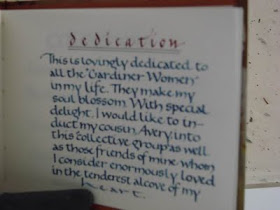 Dedication
This is lovingly dedicated to
all the "Gardiner Women"
in my life. They make my
soul blossom. With special
delight, I would like to in-
duct my cousin Avery into
this collective group as well
as those friends of mine whom
I consider enormously loved
in the tenderest alcove of my
heart.